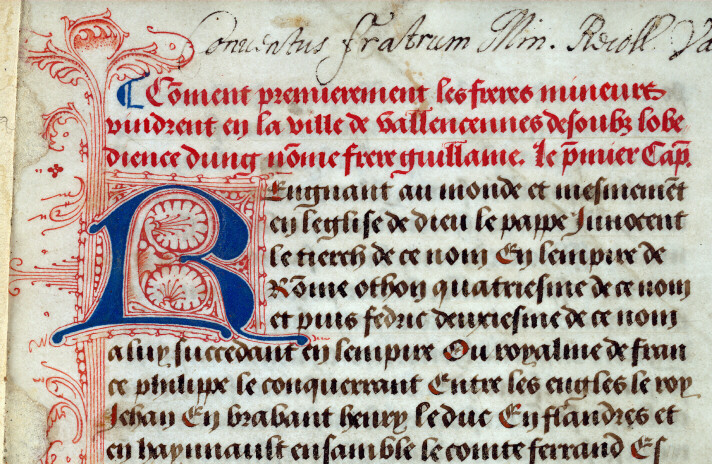 Conventus fratrum Min. Recoll. Va
¶ Cōment premierement les freres mineurs
vindrent en la ville de vallencennes desoubz lobe
dience dung nōme frere guillame. Le p̄mier Cap̄.
REngnant au monde et mesmemēt
en leglise de dieu le pappe Innocent
le tierch de ce nom En lempire de
Rōme othon quatriesme de ce nom
et puis fedric deuxiesme de ce nom
a luy succedant en lempire Ou royalme de fran
ce philippe le conquerrant Entre les engles le roy
Jehan En brabant henry le duc En flandres et
en haynnault ensamble le comte ferrand Es